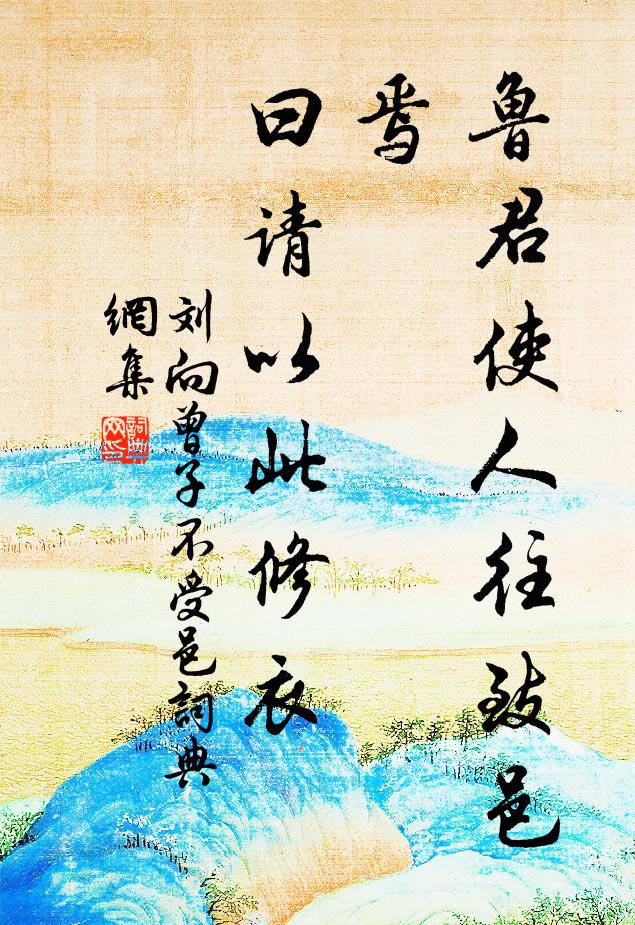 鲁君使人往致邑
焉
曰请以此修衣
刘向曾子不受邑詞典
網集